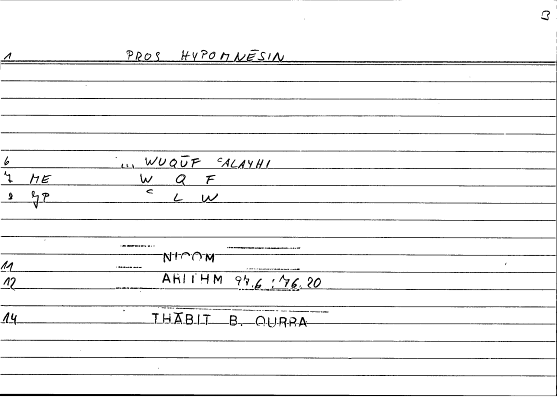 B
1 PROS HYPOMNĒSIN
6 ... WUQŪF ʿALAYHI
7 ME W Q F
8 ʿ L W
NICOM
11
12 ARITHM 94.6 : 76.20
14 THĀBIT B. QURRA